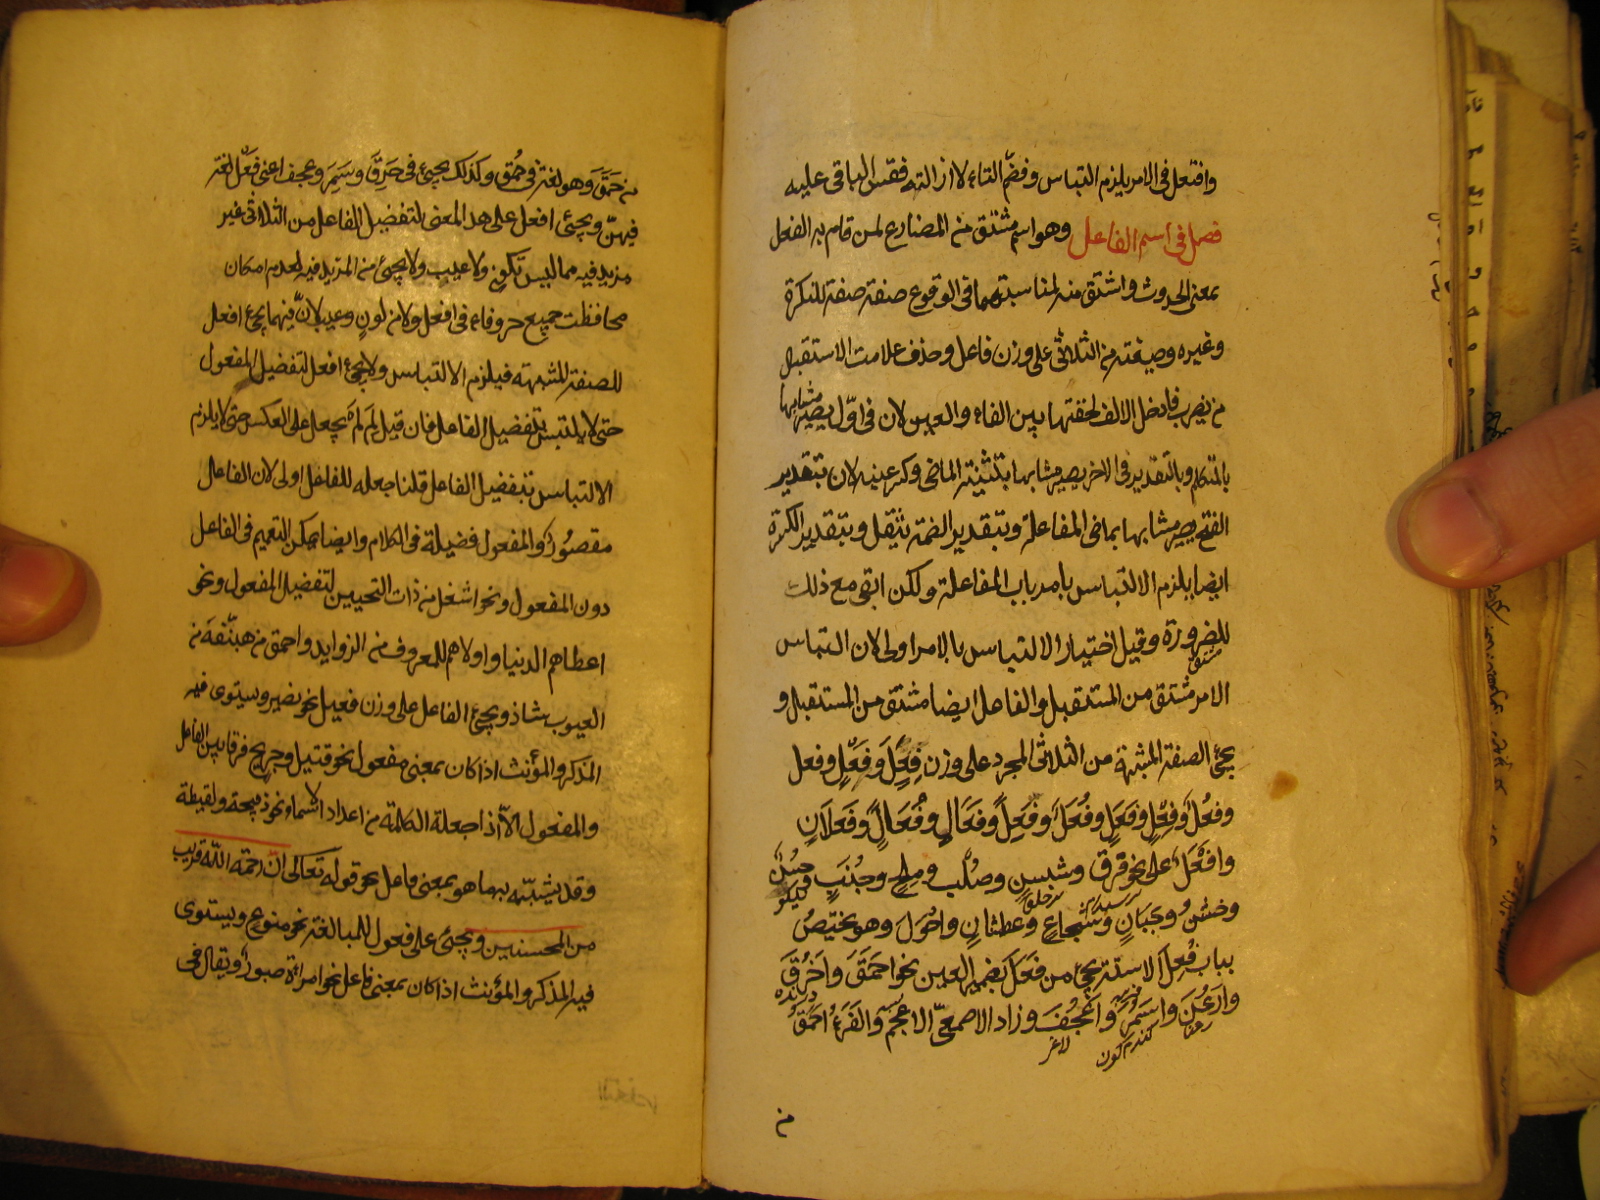 وافتعل فى الامر يلزم التباس وفضمّ التاء لا ازالته فقس الباقى عليه
فصل فى اسم الفاعل وهو اسم مشتق من المضارع لمن قام به الفعل
بمعنى الحدوث واشتق منه لمناسبتهما فى الوقوع صفة صفة للنكرة
وغيره وصيغته من الثلاثى على وزن فاعل وحذف علامت الاستقبال
من يضرب فادخل الالف لخفتها بين الفاء والعين لان فى اوّل يصير مشابها
بالمتكلم وبالتقدير فى الاخر يصير مشابها بتثنية الماضى وكسر عينه لان بتقدير
الفتح يصير مشابها بماضى المفاعلة وبتقدير الضمة يثقل وبتقدير الكسرة
ايضا يلزم الالتباس بامر باب المفاعلة ولكن ابقى مع ذلك
للضرورة وقيل اختيار الالتباس بالامر اولى لان التباس
الامر مشتق من المستقبل والفاعل ايضا مشتق من المستقبل و
يجئ الصفة المشبهة من الثلاثى المجرد على وزن فعل وفعل وفعل
وفعل وفعل وفعل وفعل وفعل وفعال وفعال وفعلان
وافعل على نحو فرق وشبس وصلب وملح وجنب وحسن
وخشن وجبان وشجاع وعطشان واحول وهو يختص
بباب فعل الا ستة يجئ من فعل بضم العين نحو احمق واخرق
وارعن واسمر واعجف وزاد الاصمعىّ الاعجم والفرّاء احمق
لاغر
كندم كون
من
من حمق وهو لغة فى حمق وكذلك يجئ فى خرق وسمر وعجف اعنى فعل لغة
فيهنّ ويجئ افعل على هذ المعنى لتفضيل الفاعل من الثلاثى غير
مزيد فيه مما ليس بلون ولا عيب ولا يجئ من المزيد فيه لعدم امكان
محافظت جميع حروفاء فى افعل ولا من لون وعيب لان فيهما يجئ افعل
للصفة المشبهة فيلزم الالتباس ولا يجئ افعل لتفضيل المفعول
حتى لا يلتبس بتفضيل الفاعل فان قيل لم لم يجعل على العكس حتى لا يلزم
الالتباس بتفضيل الفاعل قلنا جعله للفاعل اولى لان الفاعل
مقصود والمفعول فضيلة فى الكلام وايضا يمكن التعميم فى الفاعل
دون المفعول ونحو اشغل من ذات النحيين لتفضيل المفعول ونحو
اعطاهم الدنيا واولاهم للمعروف من الزوايد واحمق من هبنّقة من
العيوب شاذ ويجئ الفاعل على وزن فعيل نحو نصير وسيتوى فيه
المذكر والمؤنث اذا كان بمعنى مفعول نحو قتيل وجريح فرقا بين الفاعل
والمفعول الاّ اذا جعلة الكلمة من اعداد الاسماء نحو ذبيحة ولقيطة
وقد يشبّه به ما هو بمعنى فاعل نحو قوله تعالى انّ رحمة اللّه قريب
من المحسنين ويجئ على فعول للمبالغة نحو منوع ويستوى
فيه المذكر والمؤنث اذا كان بمعنى فاعل نحو امراة صبور ويقال فى